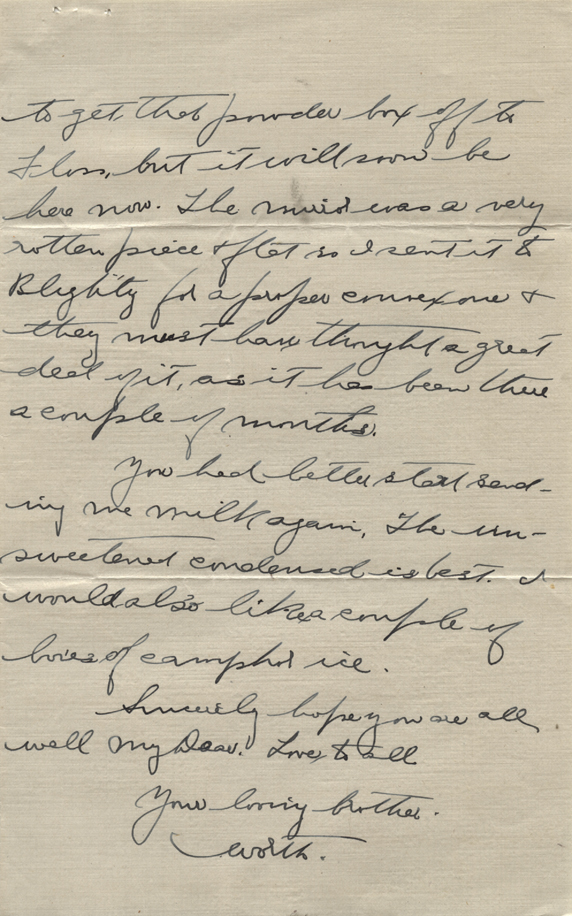 to get that powder box off to
Floss, but it will soon be
here now. The mirror was a very
rotten piece & flat so I sent it to
Blighty for a proper convex one &
they must have thought a great
deal of it, as it has been there
a couple of months.
You had better start send-
ing me milk again, The un-
sweetened condensed is best. I
would also like a couple of
boxes of camphor ice.
Sincerely hope you are all
well my Dear. Love to all
Your loving brother.
Worth.